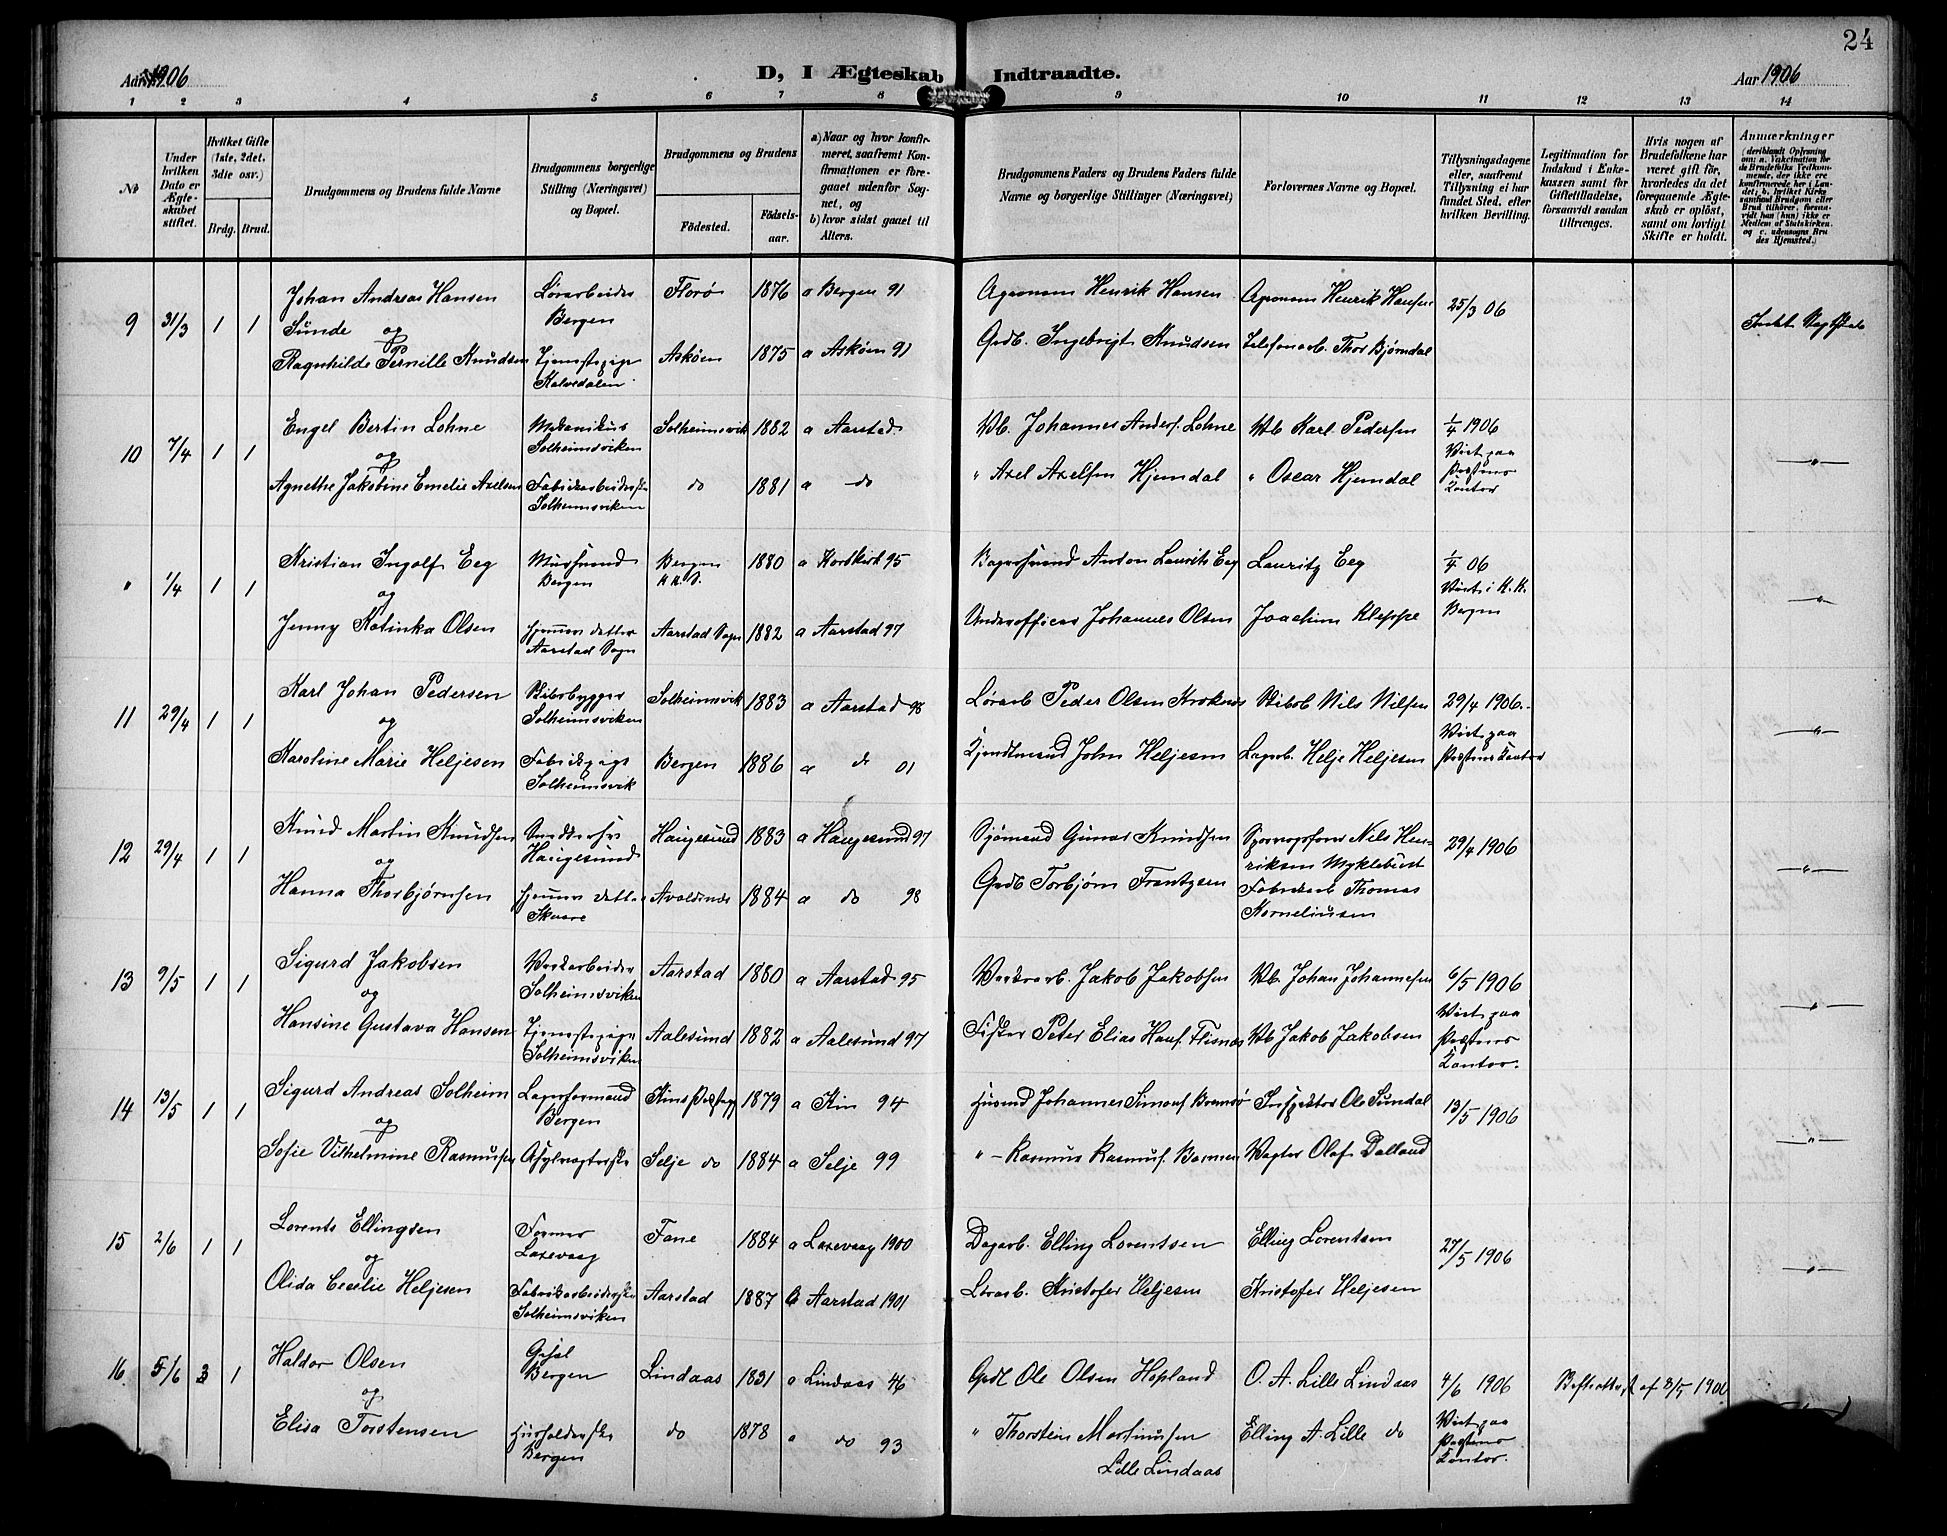 24
Aar 1906
D, I Ægteskab Indtraadte.
Aar 1906
1 2 3 4 5 6 7 8 9 10 11 12 13 14
No
Under hvilken Dato er Ægteskabet stiftet.
Hvilket Gifte (1ste, 2det, 3die osv.)
Brdg. Brud.
Brudgommens og Brudens fulde Navne
Brudgommens borgerlige Stilling (Næringsvei) og Bopæl.
Brudgommens og Brudens
Fødested.
Fødselsaar.
a) Naar og hvor konfirmeret, saafremt Konfirmationen er foregaaet udenfor Sognet, og
b) hvor sidst gaaet til Alters.
Brudgommens Faders og Brudens Faders fulde Navne og borgerlige Stillinger (Næringsvei)
Forlovernes Navne og Bopæl.
Tillysningsdagene eller, saafremt Tillysning ei har fundet Sted, efter hvilken Bevilling.
Legitimation for Indskud i Enkekassen samt for Giftetilladelse, forsaavidt saadan tiltrænges.
Hvis nogen af Brudefolkene har været gift før, hvorledes da det foregaaende Ægteskab er opløst, samt om lovligt Skifte er holdt.
Anmærkninger
(deriblandt Oplysning om: a. Vakcination for de Brudefolks Vedkommende, der ikke ere konfirmerede her i Landet; b. hvilket Kirkesamfund Brudgom eller Brud tilhører, forsaavidt han (hun) ikke er Medlem af Statskirken, og c. udensogns Brudes Hjemsted.)
9 31/3 1 1 Johan Andreas Hansen Sunde og
Bergen Florø 1876 a Bergen 91
Agronom Henrik Hansen Agronom Henrik Hansen 25/3 06
Ragnhilde Pernille Knudsen Tjenestepige Kalvedalen Askøen 1875 a Askøen 91
Grdb. Ingebrigt Knudsen Telefonarb. Thor Bjørndal
10 7/4 1 1 Engel Bertin Lohne og
Mekanikus Solheimsviken Solheimsvik 1882 a Aarstad
Vb. Johannes Anders. Lohne Vb Karl Pedersen 1/4 1906 Vist paa Præstens Kontor
Agnethe Jakobine Emelie Axelsen Fabrikarbeiderske Solheimsviken do 1881 a do
" Axel Axelsen Hjemdal " Oscar Hjemdal
" 1/4 1 1 Kristian Ingolf Eeg og
Bergen Bergen 1880 a Korskirk 95
Anton Laurits Eeg Lauritz Eeg 1/4 06 Bergen
Jenny Katinka Olsen Hjemmev. datter Aarstad Sogn Aarstad Sogn 1882 a Aarstad 97
Underofficer Johannes Olsen Joachim Kleppe
11 29/4 1 1 Karl Johan Pedersen og
Solheimsviken Solheimsvik 1883 a Aarstad 98
Peder Olsen Kroknes Nils Nilsen 29/4 1906. Vist paa Præstens Kontor
Karoline Marie Heljesen Fabrikpige Solheimsvik Bergen 1886 a do 01
John Heljesen Lagerb. Helje Heljesen
12 29/4 1 1 Knud Martin Knudsen og
Haugesund Haugesund 1883 a Haugesund 97
Sjømand Gunnar Knudsen Nils Henriksen Myklebust 29/4 1906
Hanna Thorbjørnsen Hjemmev. datter Skaare Avaldsnes 1884 a do 98
Grdb Torbjørn Frantzen Fabrikarb Thomas Korneliussen
13 9/5 1 1 Sigurd Jakobsen og
Værkarbeider Solheimsviken Aarstad 1880 a Aarstad 95
Jakob Jakobsen Vb Johan Johannesen 6/5 1906 Vist paa Præstens Kontor.
Hansine Gustava Hansen Tjenestepige Solheimsviken Aalesund 1882 a Aalesund 97
Fisker Peter Elias Hans. Flisnes Vb Jakob Jakobsen
14 13/5 1 1 Sigurd Andreas Solheim og
Lagerformand Bergen Kins Præstegj 1879 a Kin 94
Husmd Johannes Simons. Bremsø Inspektør Ole Sundal 13/5 1906
Sofie Vilhelmine Rasmussen Selje do 1884 a Selje 99
" Rasmus Rasmus. Vagter Olaf Dalland
15 2/6 1 1 Lorents Ellingsen og
Former Laxevaag Fane 1884 a Laxevaag 1900
Dagarb. Elling Lorentsen Elling Lorentsen 27/5 1906
Olida Cecilie Heljesen Fabrikarbeiderske Solheimsviken Aarstad 1887 b Aarstad 1901
Kristofer Heljesen Kristofer Heljesen
16. 5/6 3 1 Haldor Olsen og
Bergen Lindaas 1831 a Lindaas 46
Grdb Ole Olsen Hopland O. A. Lille Lindaas 4/6 1906 Vist paa Præstens Kontor.
Skifteattest af 8/5 1906
Elisa Torstensen Husholderske Bergen do 1878 a do 93
" Thorstein Martinussen Lille Lindaas Elling A. Lille do